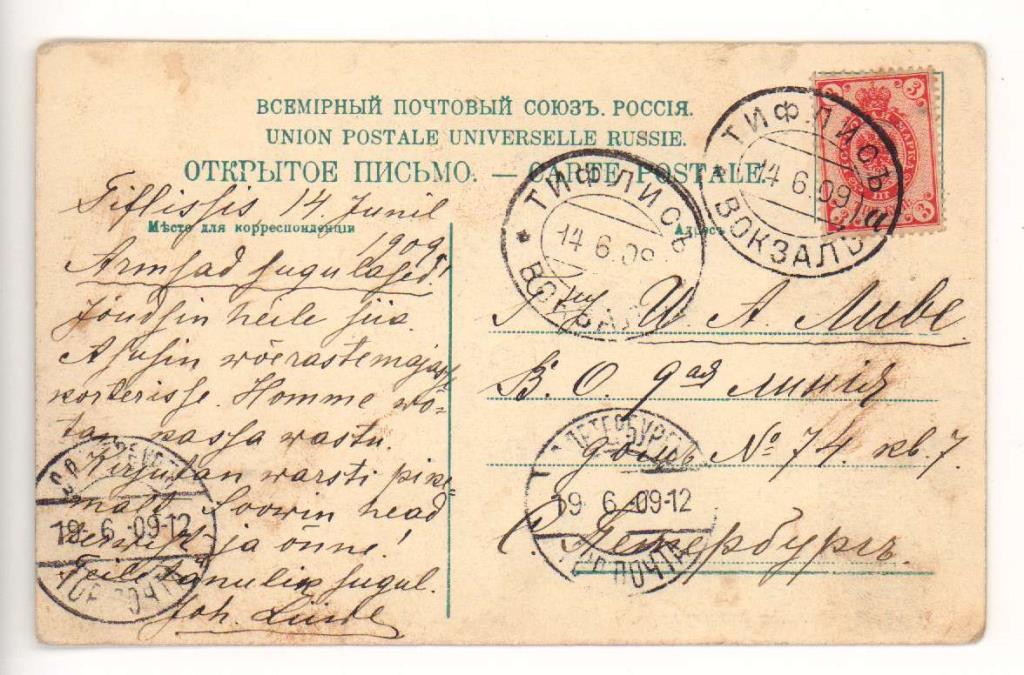 ВСЕМІРНЫЙ ПОЧТОВЫЙ СОЮЗЪ. РОССІЯ.
UNION POSTALE UNIVERSELLE RUSSIE.
ОТКРЫТОЕ ПИСЬМО. — CARTE POSTALE.
Мѣсто для корреспонденціи
Адресъ
Tiflissis 14. Junil
1909.
Armsad sugulased!
Jõudsin heile siia.
Asusin wõerastemajasse
korterisse. Homme wõ-
tan kassa wastu.
Kirjutan warsti pike-
malt. Soowin head
terwist ja õnne!
Teile tänulik sugul.
Joh. Liiwe
И. А. Ливе
В. О. 9ая линія
домъ № 74. кв. 7.
С. Петербургъ.
ТИФЛИСЪ
14 6.09
ВОКЗАЛЪ
ТИФЛИСЪ
14 6.09
ВОКЗАЛ
3
3
3
С. ПЕТЕРБУРГЪ
19. 6.-09-12
ГОР. ПОЧТА
ПЕТЕРБУРГЪ
19 6.-09-12
ГОР. ПОЧТА